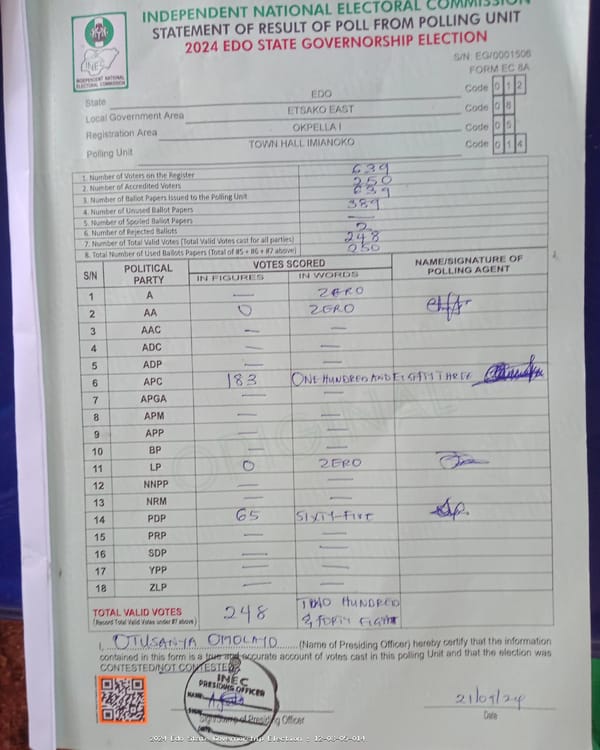 INDEPENDENT NATIONAL ELECTORAL COMMISSION
STATEMENT OF RESULT OF POLL FROM POLLING UNIT
2024 EDO STATE GOVERNORSHIP ELECTION
INEC
INDEPENDENT NATIONAL ELECTORAL COMMISSION
S/N: EG/0001506
FORM EC 8A
State EDO Code 0 1 2
Local Government Area ETSAKO EAST Code 0 8
Registration Area OKPELLA I Code 0 5
Polling Unit TOWN HALL IMIANOKO Code 0 1 4
1. Number of Voters on the Register 639
2. Number of Accredited Voters 250
3. Number of Ballot Papers Issued to the Polling Unit 639
4. Number of Unused Ballot Papers 389
5. Number of Spoiled Ballot Papers —
6. Number of Rejected Ballots 2
7. Number of Total Valid Votes (Total Valid Votes cast for all parties) 248
8. Total Number of Used Ballots Papers (Total of #5 + #6 + #7 above) 250
S/N POLITICAL PARTY VOTES SCORED NAME/SIGNATURE OF POLLING AGENT
IN FIGURES IN WORDS
1 A — ZERO
2 AA 0 ZERO
3 AAC — —
4 ADC — —
5 ADP — —
6 APC 183 ONE HUNDRED AND EIGHTY THREE
7 APGA — —
8 APM — —
9 APP — —
10 BP — —
11 LP 0 ZERO
12 NNPP — —
13 NRM — —
14 PDP 65 SIXTY-FIVE
15 PRP — —
16 SDP — —
17 YPP — —
18 ZLP — —
ORIGINAL
TOTAL VALID VOTES 248 TWO HUNDRED
(Record Total Valid Votes under #7 above) & FORTY EIGHT
I, OTUSANYA OMOLAYO (Name of Presiding Officer) hereby certify that the information
contained in this form is a true and accurate account of votes cast in this polling Unit and that the election was
CONTESTED/NOT CONTESTED
INEC
PRESIDING OFFICER
NAME
SIGN
DATE
Signature of Presiding Officer
21/09/24
Date
2024 Edo State Governorship Election - 12-08-05-014